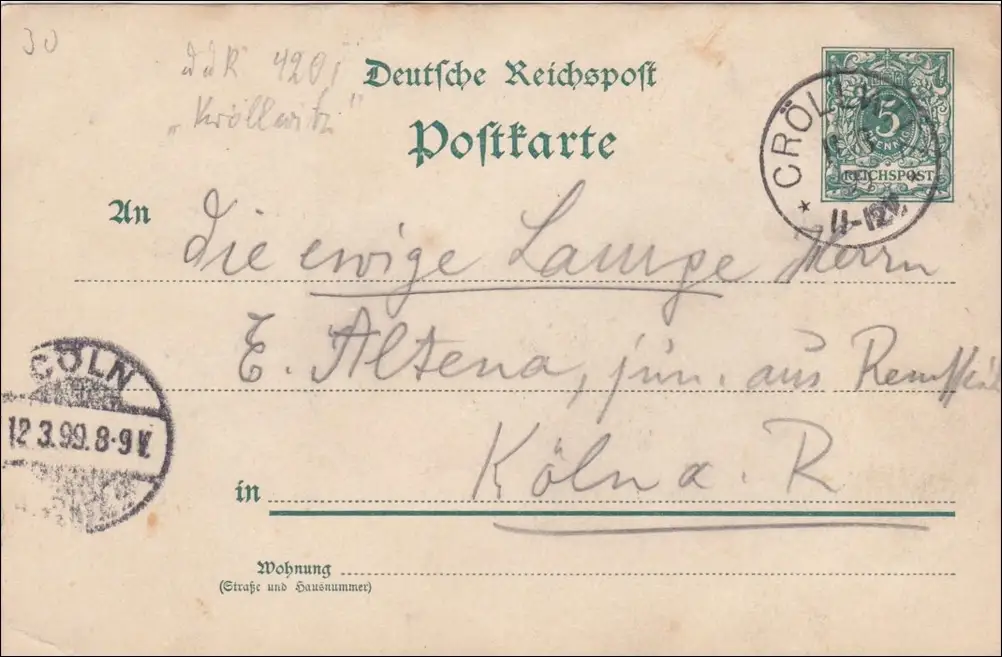 30
ddR 420,
„Kröllwitz"
Deutsche Reichspost
Postkarte
5
REICHSPOST
CRÖLLW
11-12V.
An
Die ewige Lampe Herrn
E. Altena, jun. aus
Köln a. R
in
CÖLN
12.3.99.8-9V.
Wohnung
(Straße und Hausnummer)